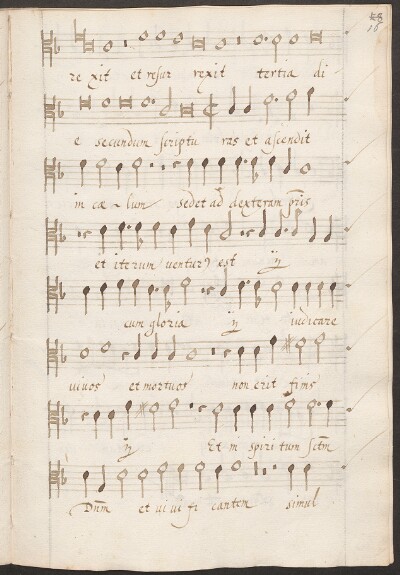 16
re xit et resur rexit tertia di
e secundum scriptu ras et ascendit
in cae lum sedet ad dexteram p̄ris
et iterum venturꝰ est ij
cum gloria ij iudicare
uiuos et mortuos non erit finis
ij Et in spiri tum sct̄m
Dn̄m et ui ui fi cantem simul